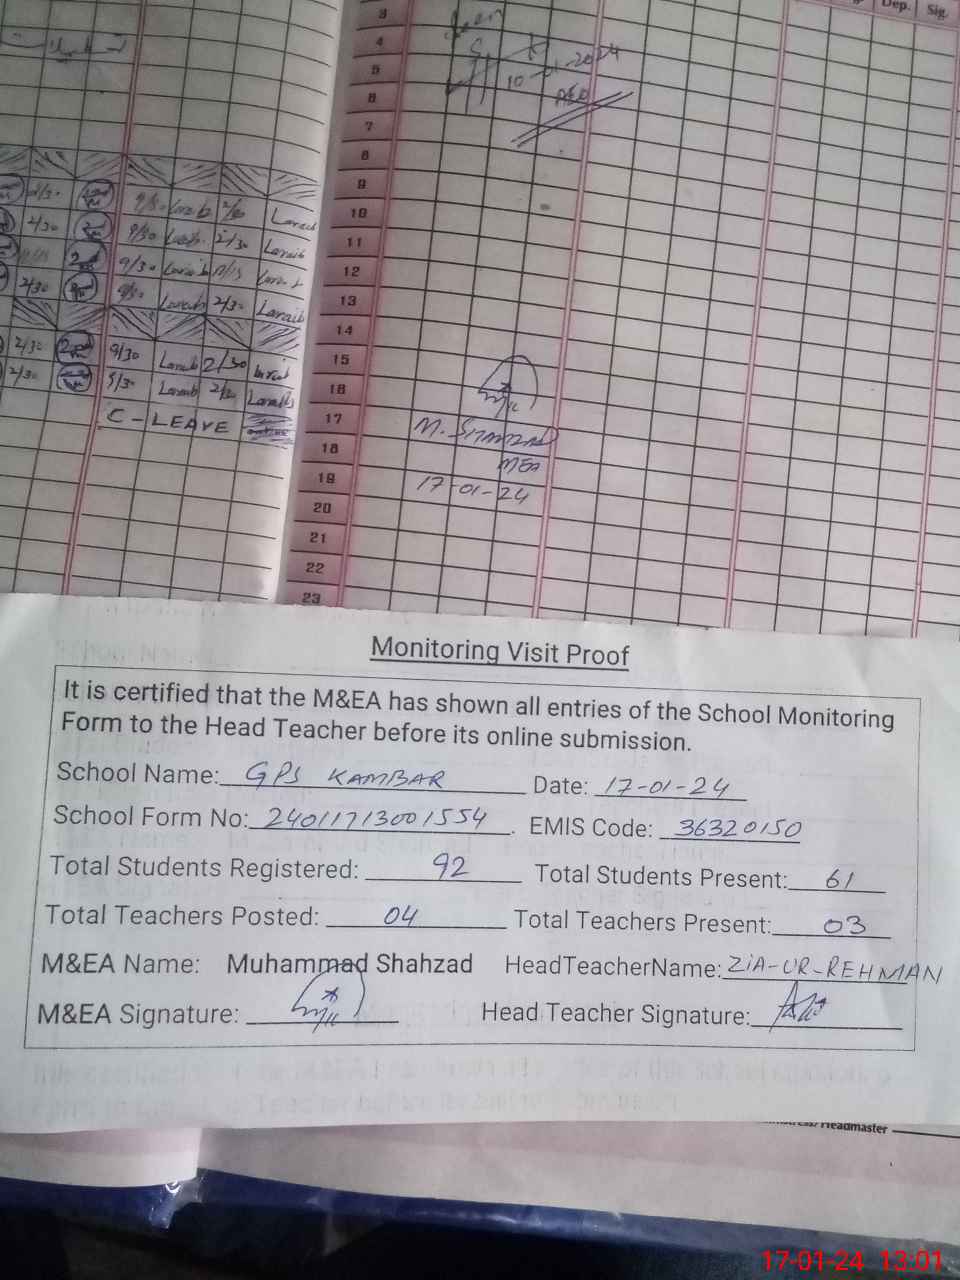 Dep. Sig.
3
4
5
6
7
8
9
10
11
12
13
14
15
16
17
18
19
20
21
22
23
Seen
10-1-2024
AEO
2/30 9/30 Laraib 2/30 Laraib
2/30 9/30 Laraib 2/30 Laraib
11/15 9/30 Laraib 11/15 Laraib
2/30 9/30 Laraib 2/30 Laraib
2/30 9/30 Laraib 2/30 Laraib
2/30 9/30 Laraib 2/30 Laraib
C - LEAVE
M. SHAHZAD
MEA
17-01-24
Monitoring Visit Proof
It is certified that the M&EA has shown all entries of the School Monitoring
Form to the Head Teacher before its online submission.
School Name: GPS KAMBAR Date: 17-01-24
School Form No: 24011713001554. EMIS Code: 36320150
Total Students Registered: 92 Total Students Present: 61
Total Teachers Posted: 04 Total Teachers Present: 03
M&EA Name: Muhammad Shahzad HeadTeacherName: ZIA-UR-REHMAN
M&EA Signature: Head Teacher Signature:
Headmaster
17-01-24 13:01